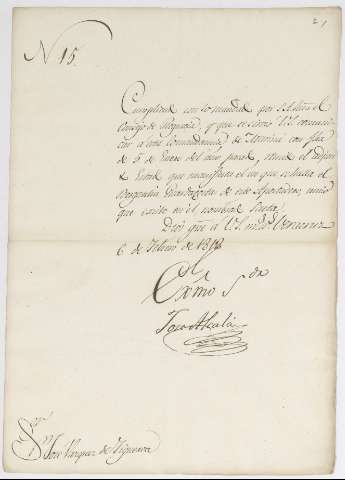 2,
N 15.
Cumpliendo con lo mandado por S. Alteza el
Consejo de Regencia, y que se sirvió V.S. comunicar
a esta Comandancia de Marina con fha
de 5 de Enero del año pasado, remito el adjunto
Estado que manifiesta el en que se halla el
Bergantin de este Apostadero, unico
que existe en el nombrado
Dios gue a V.S. m.s a.s Veracruz
6 de Febrero de 1818
Exmo Sor
Jose Alcala
Sor
Dn Jose Vazquez de Figueroa